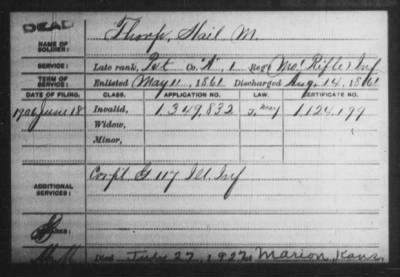 DEAD
NAME OF SOLDIER: Thorp, Hail M.
SERVICE: Late rank, Pvt Co. K 1 Reg't (Mo. Rifles) Inf
TERM OF SERVICE: Enlisted May 11, 1861 Discharged Aug. 14, 1861
DATE OF FILING. CLASS. APPLICATION NO. LAW. CERTIFICATE NO.
1906 June 18 Invalid, 1,349,832 1,124,199
Widow,
Minor,
ADDITIONAL SERVICES: Corpl G 117 Ill. Inf
REMARKS:
Died July 27, 1927 at Marion, Kans.